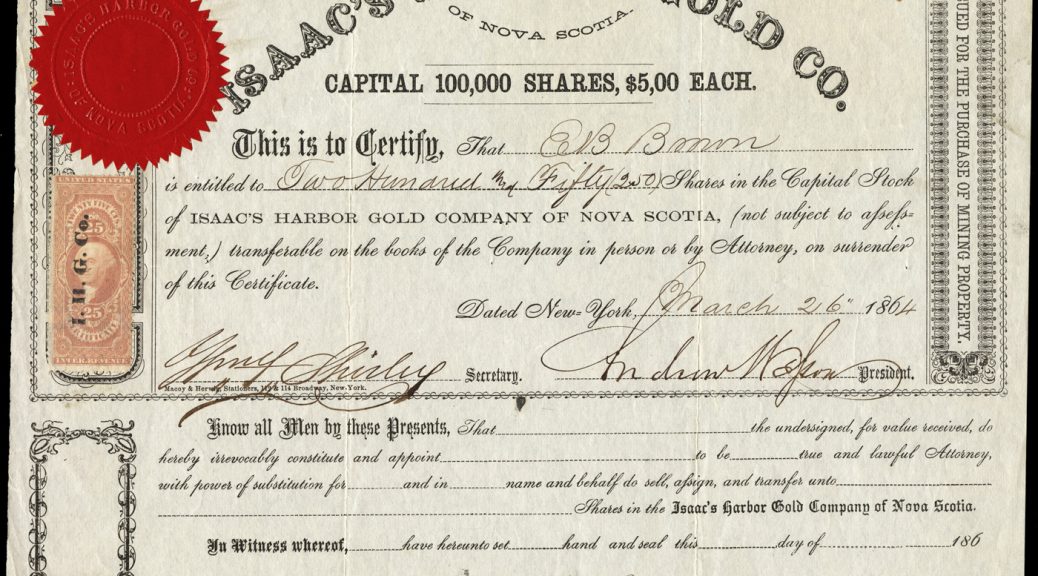 ISAAC'S GOLD CO.
OF NOVA SCOTIA.
CAPITAL 100,000 SHARES, $5,00 EACH.
ISAAC'S HARBOR GOLD CO. OF NOVA SCOTIA
This is to Certify, That E B Brown
is entitled to Two Hundred and Fifty (250) Shares in the Capital Stock
of ISAAC'S HARBOR GOLD COMPANY OF NOVA SCOTIA, (not subject to assess-
ment,) transferable on the books of the Company in person or by Attorney, on surrender
of this Certificate.
Dated New-York, March 26" 1864
UNITED STATES
25
I. H. G. Co.
25
CERTIFICATE
INTER. REVENUE
Secretary.
Andrew President.
Macoy & Herwig, Stationers, 112 & 114 Broadway, New-York.
SUED FOR THE PURCHASE OF MINING PROPERTY.
Know all Men by these Presents, That the undersigned, for value received, do
hereby irrevocably constitute and appoint to be true and lawful Attorney,
with power of substitution for and in name and behalf do sell, assign, and transfer unto
Shares in the Isaac's Harbor Gold Company of Nova Scotia.
In Witness whereof, have hereunto set hand and seal this day of 186